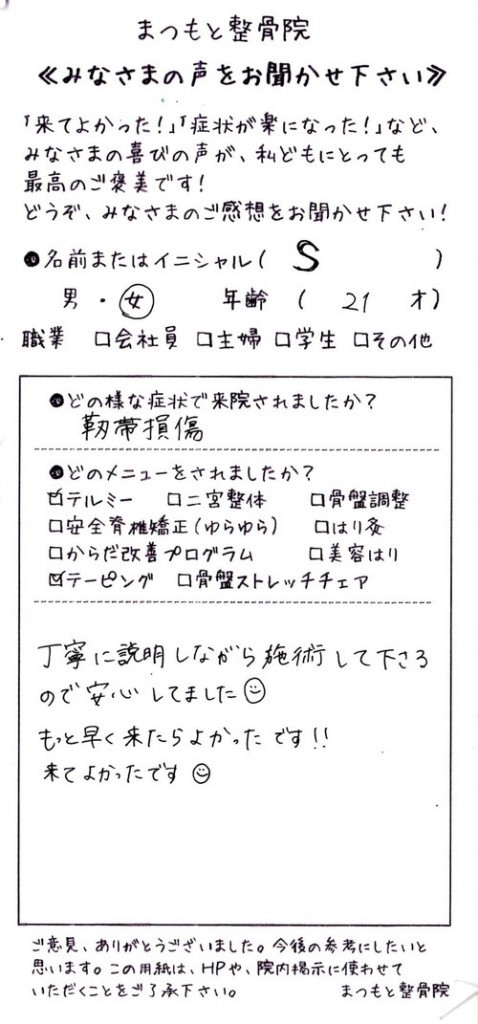 まつもと整骨院
≪みなさまの声をお聞かせ下さい≫
「来てよかった!」「症状が楽になった!」など、
みなさまの喜びの声が、私どもにとっても
最高のご褒美です!
どうぞ、みなさまのご感想をお聞かせ下さい!
●名前またはイニシャル( S )
男 ・ 女 年齢 ( 21 才)
職業 □会社員 □主婦 □学生 □その他
●どの様な症状で来院されましたか?
靱帯損傷
●どのメニューをされましたか?
☑テルミー □二宮整体 □骨盤調整
□安全脊椎矯正(ゆらゆら) □はり灸
□からだ改善プログラム □美容はり
☑テーピング □骨盤ストレッチチェア
丁寧に説明しながら施術して下さる
ので安心してました☺
もっと早く来たらよかったです!!
来てよかったです☺
ご意見、ありがとうございました。今後の参考にしたいと
思います。この用紙は、HPや、院内掲示に使わせて
いただくことをご了承下さい。 まつもと整骨院